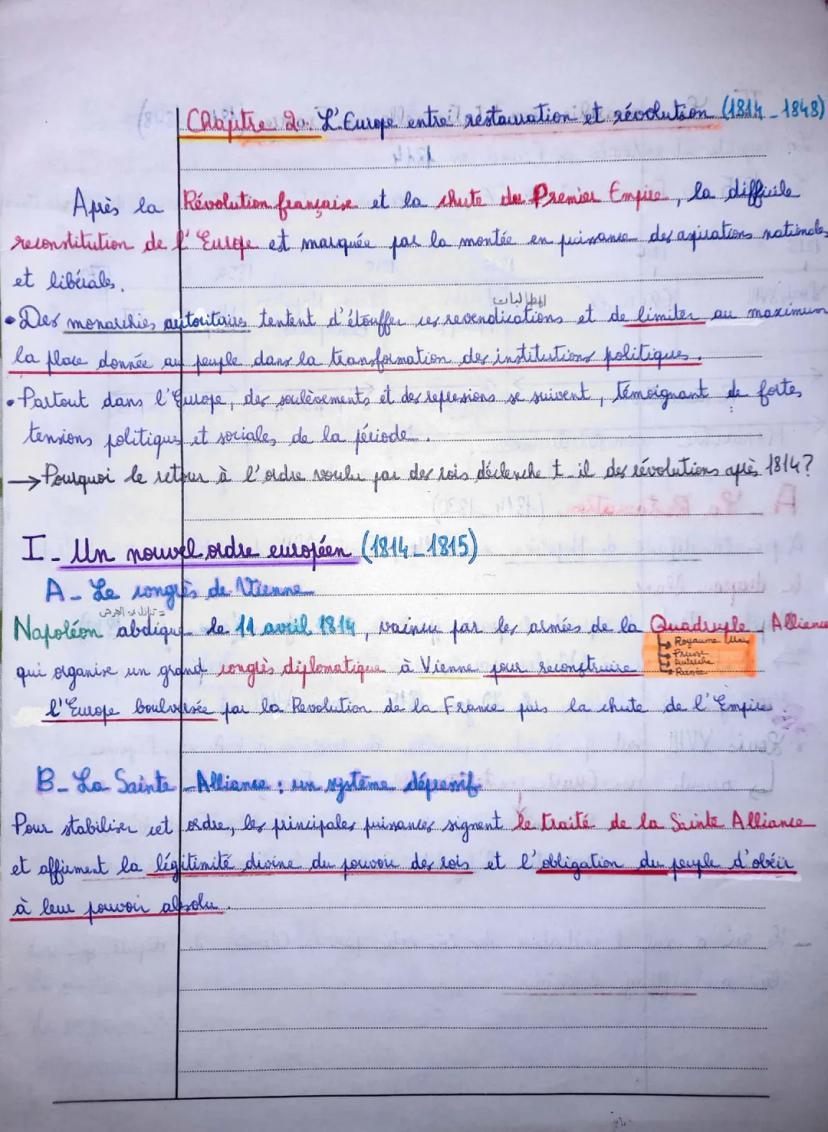 Chapitre 2: L'Europe entre restauration et révolution (1814-1848)
Après la Révolution française et la chute du Premier Empire, la difficile
reconstitution de l'Europe et marquée par la montée en puissance des aspirations nationales
et libérales.
المطالبات
• Des monarchies autoritaires tentent d'étouffer ces revendications et de limiter au maximum
la place donnée au peuple dans la transformation des institutions politiques.
• Partout dans l'Europe, des soulèvements et des repressions se suivent, témoignant de fortes
tensions politiques et sociales de la période.
→ Pourquoi le retour à l'ordre voulu par des rois déclenche t-il des révolutions après 1814?
I - Un nouvel ordre européen (1814-1815)
A - Le congrès de Vienne
= تنازل عن العرش
Napoléon abdique le 11 avril 1814, vaincu par les armées de la Quadruple-Alliance
Royaume Uni
Prusse
Autriche
Russie
qui organise un grand congrès diplomatique à Vienne pour reconstruire
l'Europe boulversée par la Revolution de la France puis la chute de l'Empire.
B - La Sainte-Alliance : un système dépressif
Pour stabiliser cet ordre, les principales puissances signent le traité de la Sainte Alliance
et affirment la légitimité divine du pouvoir des rois et l'obligation du peuple d'obéir
à leur pouvoir absolu.